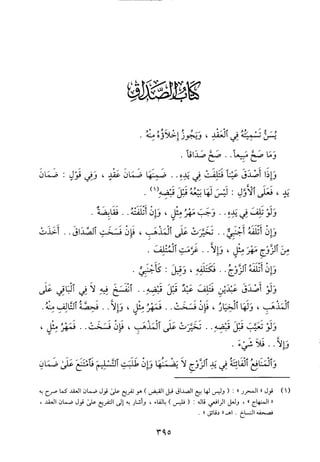 كتاب الصداق
يُسَنُّ تَسْمِيَتُهُ فِي ٱلْعَقْدِ ، وَيَجُوزُ إِخْلاَؤُهُ مِنْهُ .
وَمَا صَحَّ مَبِيعاً . . صَحَّ صَدَاقاً .
وَإِذَا أَصْدَقَ عَيْناً فَتَلِفَتْ فِي يَدِهِ . . ضَمِنَهَا ضَمَانَ عَقْدٍ ، وَفِي قَوْلٍ : ضَمَانَ
يَدٍ ، فَعَلَى ٱلأَوَّلِ : لَيْسَ لَهَا بَيْعُهُ قَبْلَ قَبْضِهِ (١) .
وَلَوْ تَلِفَ فِي يَدِهِ . . وَجَبَ مَهْرُ مِثْلٍ ، وَإِنْ أَتْلَفَتْهُ . . فَقَابِضَةٌ .
وَإِنْ أَتْلَفَهُ أَجْنَبِيٌّ . . تَخَيَّرَتْ عَلَى ٱلْمَذْهَبِ ، فَإِنْ فَسَخَتِ ٱلصَّدَاقَ . . أَخَذَتْ
مِنَ ٱلزَّوْجِ مَهْرَ مِثْلٍ ، وَإِلاَّ . . غَرَّمَتِ ٱلْمُتْلِفَ .
وَإِنْ أَتْلَفَهُ ٱلزَّوْجُ . . فَكَتَلَفِهِ ، وَقِيلَ : كَأَجْنَبِيٍّ .
وَلَوْ أَصْدَقَ عَبْدَيْنِ فَتَلِفَ عَبْدٌ قَبْلَ قَبْضِهِ . . ٱنْفَسَخَ فِيهِ لاَ فِي ٱلْبَاقِي عَلَى
ٱلْمَذْهَبِ ، وَلَهَا ٱلْخِيَارُ ، فَإِنْ فَسَخَتْ . . فَمَهْرُ مِثْلٍ ، وَإِلاَّ . . فَحِصَّةُ ٱلتَّالِفِ مِنْهُ .
وَلَوْ تَعَيَّبَ قَبْلَ قَبْضِهِ . . تَخَيَّرَتْ عَلَى ٱلْمَذْهَبِ ، فَإِنْ فَسَخَتْ . . فَمَهْرُ مِثْلٍ ،
وَإِلاَّ . . فَلاَ شَيْءَ .
وَٱلْمَنَافِعُ ٱلْفَائِتَةُ فِي يَدِ ٱلزَّوْجِ لاَ يَضْمَنُهَا وَإِنْ طَلَبَتِ ٱلتَّسْلِيمَ فَٱمْتَنَعَ عَلَى ضَمَانِ
(١) قول « المحرر » : ( وليس لها بيع الصداق قبل القبض ) هو تفريع على قول ضمان العقد كما صرح به
« المنهاج » ، ولعل الرافعي قاله : ( فليس ) بالفاء ، وأشار به إلى التفريع على قول ضمان العقد ،
فصحفه النساخ . اهـ « دقائق » .
٣٩٥